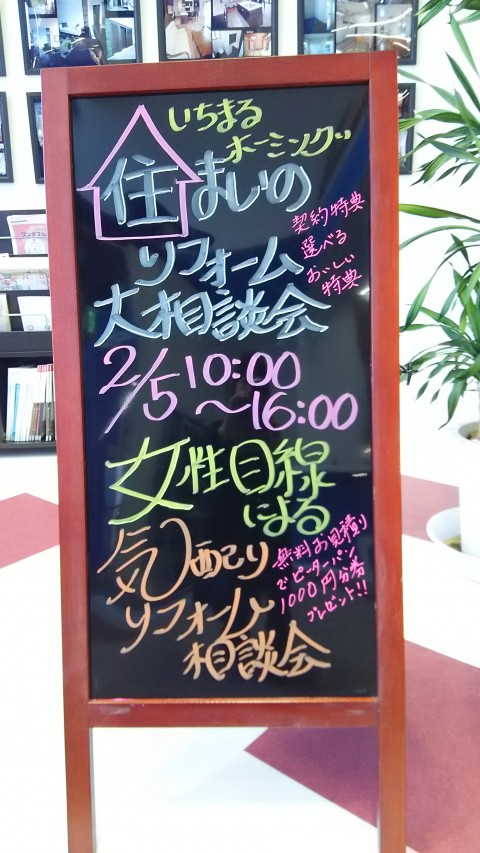 いちまる
ホーミングッ
住まいの
リフォーム
大相談会
契約特典
選べる
おいしい
特典
2/5 10:00
～16:00
女性目線
による
気配り
リフォーム
相談会
無料お見積り
でピーターパン
1000円分券
プレゼント!!